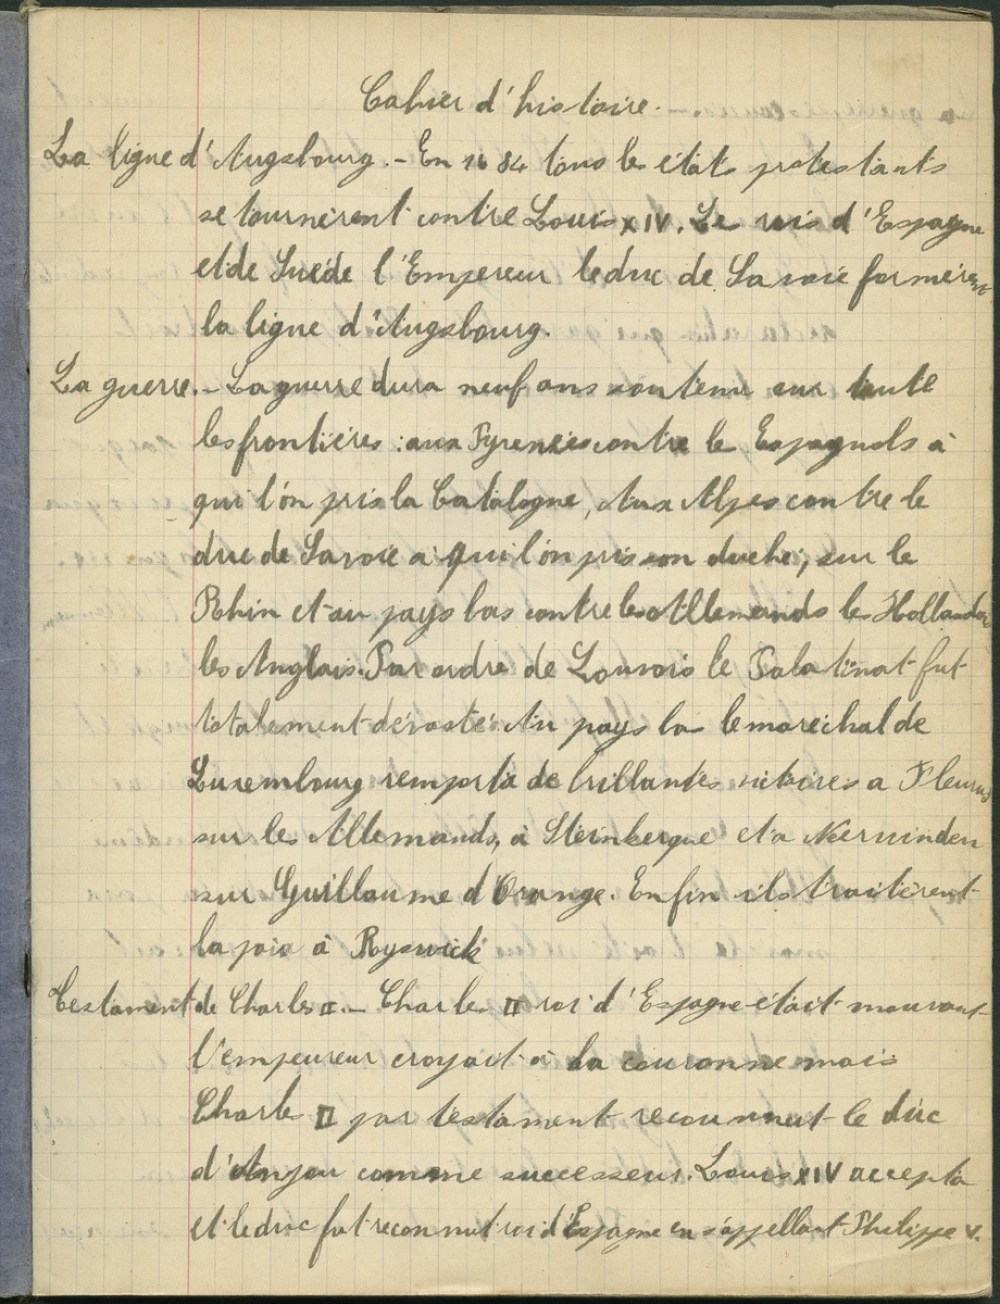 Cahier d'histoire.
La ligne d'Augsbourg. - En 1684 tous les états protestants
se tournèrent contre Louis XIV. Les rois d'Espagne
et de Suéde l'Empereur le duc de Savoie formèrent
la ligne d'Augsbourg.
La guerre. - La guerre dura neuf ans soutenu sur toute
les frontières : aux Pyrenées contre les Espagnols à
qui l'on pris la Catalogne, Aux Alpes contre le
duc de Savoie a qui l'on pris son duché, sur le
Rhin et au pays bas contre les Allemands les Hollandais
les Anglais. Par ordre de Louvois le Palatinat fut
totalement dévasté. Au pays bas le maréchal de
Luxembourg remporta de brillantes victoires a Fleurus
sur les Allemands, à Steinkerque et a Neervinden
sur Guillaume d'Orange. Enfin ils traitèrent
la paix à Ryswick
Testament de Charles II. - Charles II roi d'Espagne était mourant
l'empeureur croyait à la couronne mais
Charles II par testament reconnut le duc
d'Anjou comme successeur. Louis XIV accepta
et le duc fut reconnut roi d'Espagne en s'appellant Philippe V.